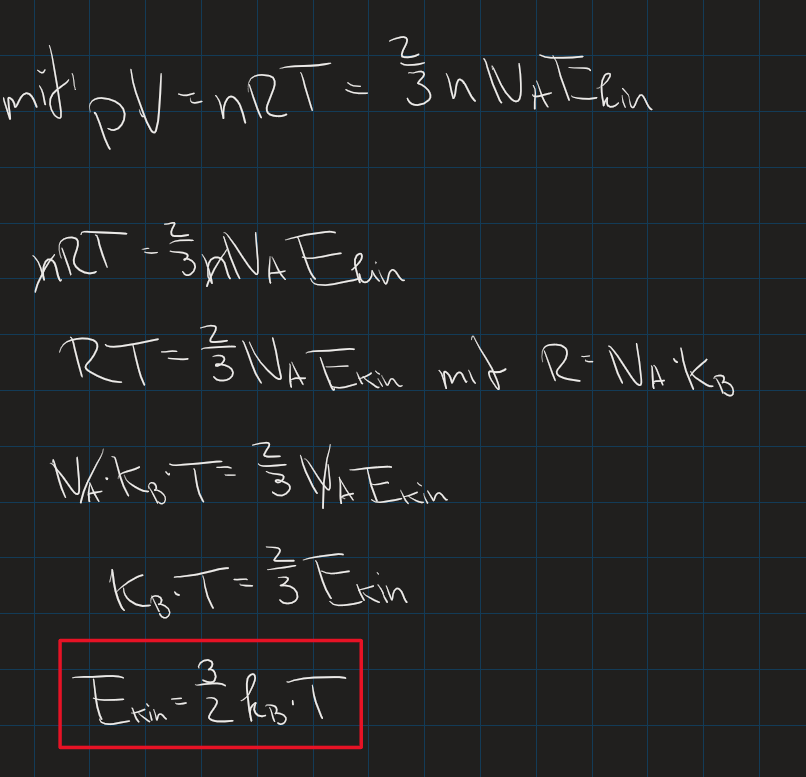 mit pV = nRT = 2/3 n N_A E_kin
nRT = 2/3 n N_A E_kin
RT = 2/3 N_A E_Kin mit R = N_A · K_B
N_A · K_B · T = 2/3 N_A E_Kin
K_B · T = 2/3 E_Kin
E_Kin = 3/2 k_B · T